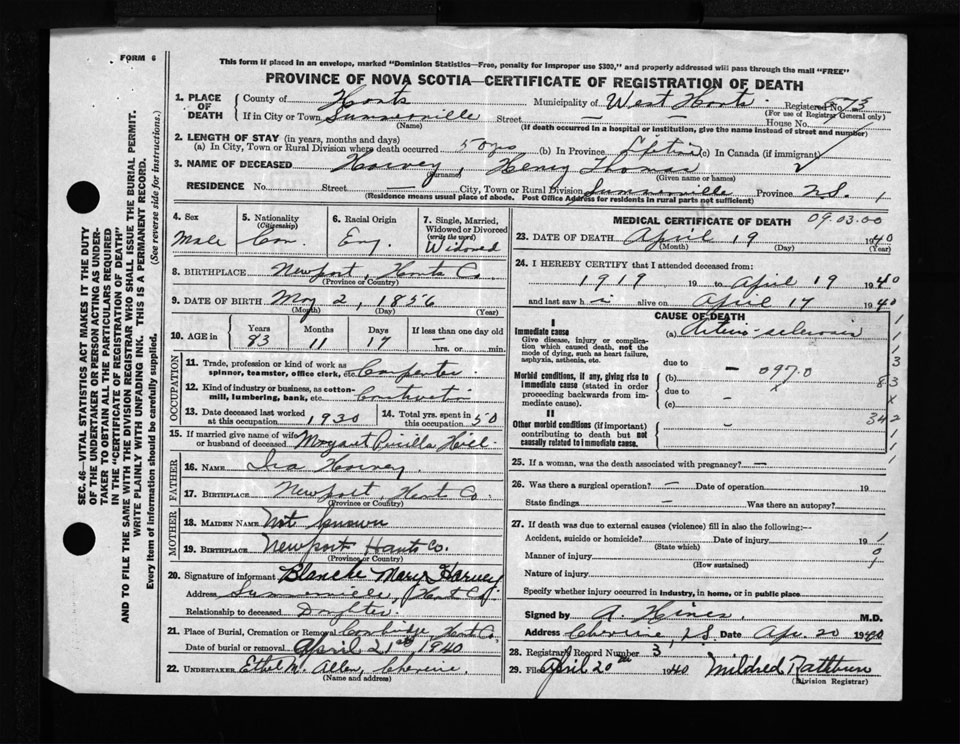 FORM 6
This form if placed in an envelope, marked "Dominion Statistics—Free, penalty for improper use $300," and properly addressed will pass through the mail "FREE"
PROVINCE OF NOVA SCOTIA—CERTIFICATE OF REGISTRATION OF DEATH
1. PLACE OF DEATH
County of Hants Municipality of West Hants Registered No. 73
(For use of Registrar General only)
If in City or Town Summerville Street — — House No.
(Name) (If death occurred in a hospital or institution, give the name instead of street and number)
2. LENGTH OF STAY (in years, months and days)
(a) In City, Town or Rural Division where death occurred 50 yrs (b) In Province Lifetime (c) In Canada (if immigrant)
3. NAME OF DECEASED Harvey, Henry Thomas
(Surname) (Given name or names)
RESIDENCE No. Street — City, Town or Rural Division Summerville Province N.S.
(Residence means usual place of abode. Post Office Address for residents in rural parts not sufficient)
4. Sex Male
5. Nationality (Citizenship) Can.
6. Racial Origin Eng.
7. Single, Married, Widowed or Divorced (write the word) Widowed
8. BIRTHPLACE Newport, Hants Co.
(Province or Country)
9. DATE OF BIRTH May 2, 1856
(Month) (Day) (Year)
10. AGE in Years 83 Months 11 Days 17 If less than one day old — hrs. or min.
OCCUPATION
11. Trade, profession or kind of work as spinner, teamster, office clerk, etc. Carpenter
12. Kind of industry or business, as cotton-mill, lumbering, bank, etc. Construction
13. Date deceased last worked at this occupation 1930
14. Total yrs. spent in this occupation 50
15. If married give name of wife or husband of deceased Margaret
FATHER
16. NAME Ira Harvey
17. BIRTHPLACE Newport, Hants Co.
(Province or Country)
MOTHER
18. MAIDEN NAME Not known
19. BIRTHPLACE Newport Hants Co.
(Province or Country)
20. Signature of informant Blanche Mary Harvey
Address Summerville, Hants Co.
Relationship to deceased Daughter
21. Place of Burial, Cremation or Removal Hants Co.
Date of burial or removal April 21st, 1940
22. UNDERTAKER Ethel M. Allen, Cheverie
(Name and address)
MEDICAL CERTIFICATE OF DEATH 09.03.00
23. DATE OF DEATH April 19 1940
(Month) (Day) (Year)
24. I HEREBY CERTIFY that I attended deceased from:
1919 19 to April 19 1940
and last saw h i alive on April 17 1940
CAUSE OF DEATH
I
Immediate cause
Give disease, injury or complication which caused death, not the mode of dying, such as heart failure, asphyxia, asthenia, etc.
(a)
due to
Morbid conditions, if any, giving rise to immediate cause (stated in order proceeding backwards from immediate cause).
(b) — 097.0
due to
(c) —
II
Other morbid conditions (if important) contributing to death but not causally related to immediate cause.
—
25. If a woman, was the death associated with pregnancy? —
26. Was there a surgical operation? — Date of operation 19
State findings — Was there an autopsy?
27. If death was due to external causes (violence) fill in also the following:—
Accident, suicide or homicide? Date of injury 19
(State which)
Manner of injury
(How sustained)
Nature of injury
Specify whether injury occurred in industry, in home, or in public place
Signed by A. Hines M.D.
Address Cheverie, N.S. Date Apr. 20 1940
28. Registrar's Record Number 3
29. Filed April 20th 1940 Mildred Rathburn
(Division Registrar)
SEC. 46—VITAL STATISTICS ACT MAKES IT THE DUTY
OF THE UNDERTAKER OR PERSON ACTING AS UNDER-
TAKER TO OBTAIN ALL THE PARTICULARS REQUIRED
IN THE "CERTIFICATE OF REGISTRATION OF DEATH"
AND TO FILE THE SAME WITH THE DIVISION REGISTRAR WHO SHALL ISSUE THE BURIAL PERMIT.
WRITE PLAINLY WITH UNFADING INK. THIS IS A PERMANENT RECORD.
Every item of information should be carefully supplied. (See reverse side for instructions.)